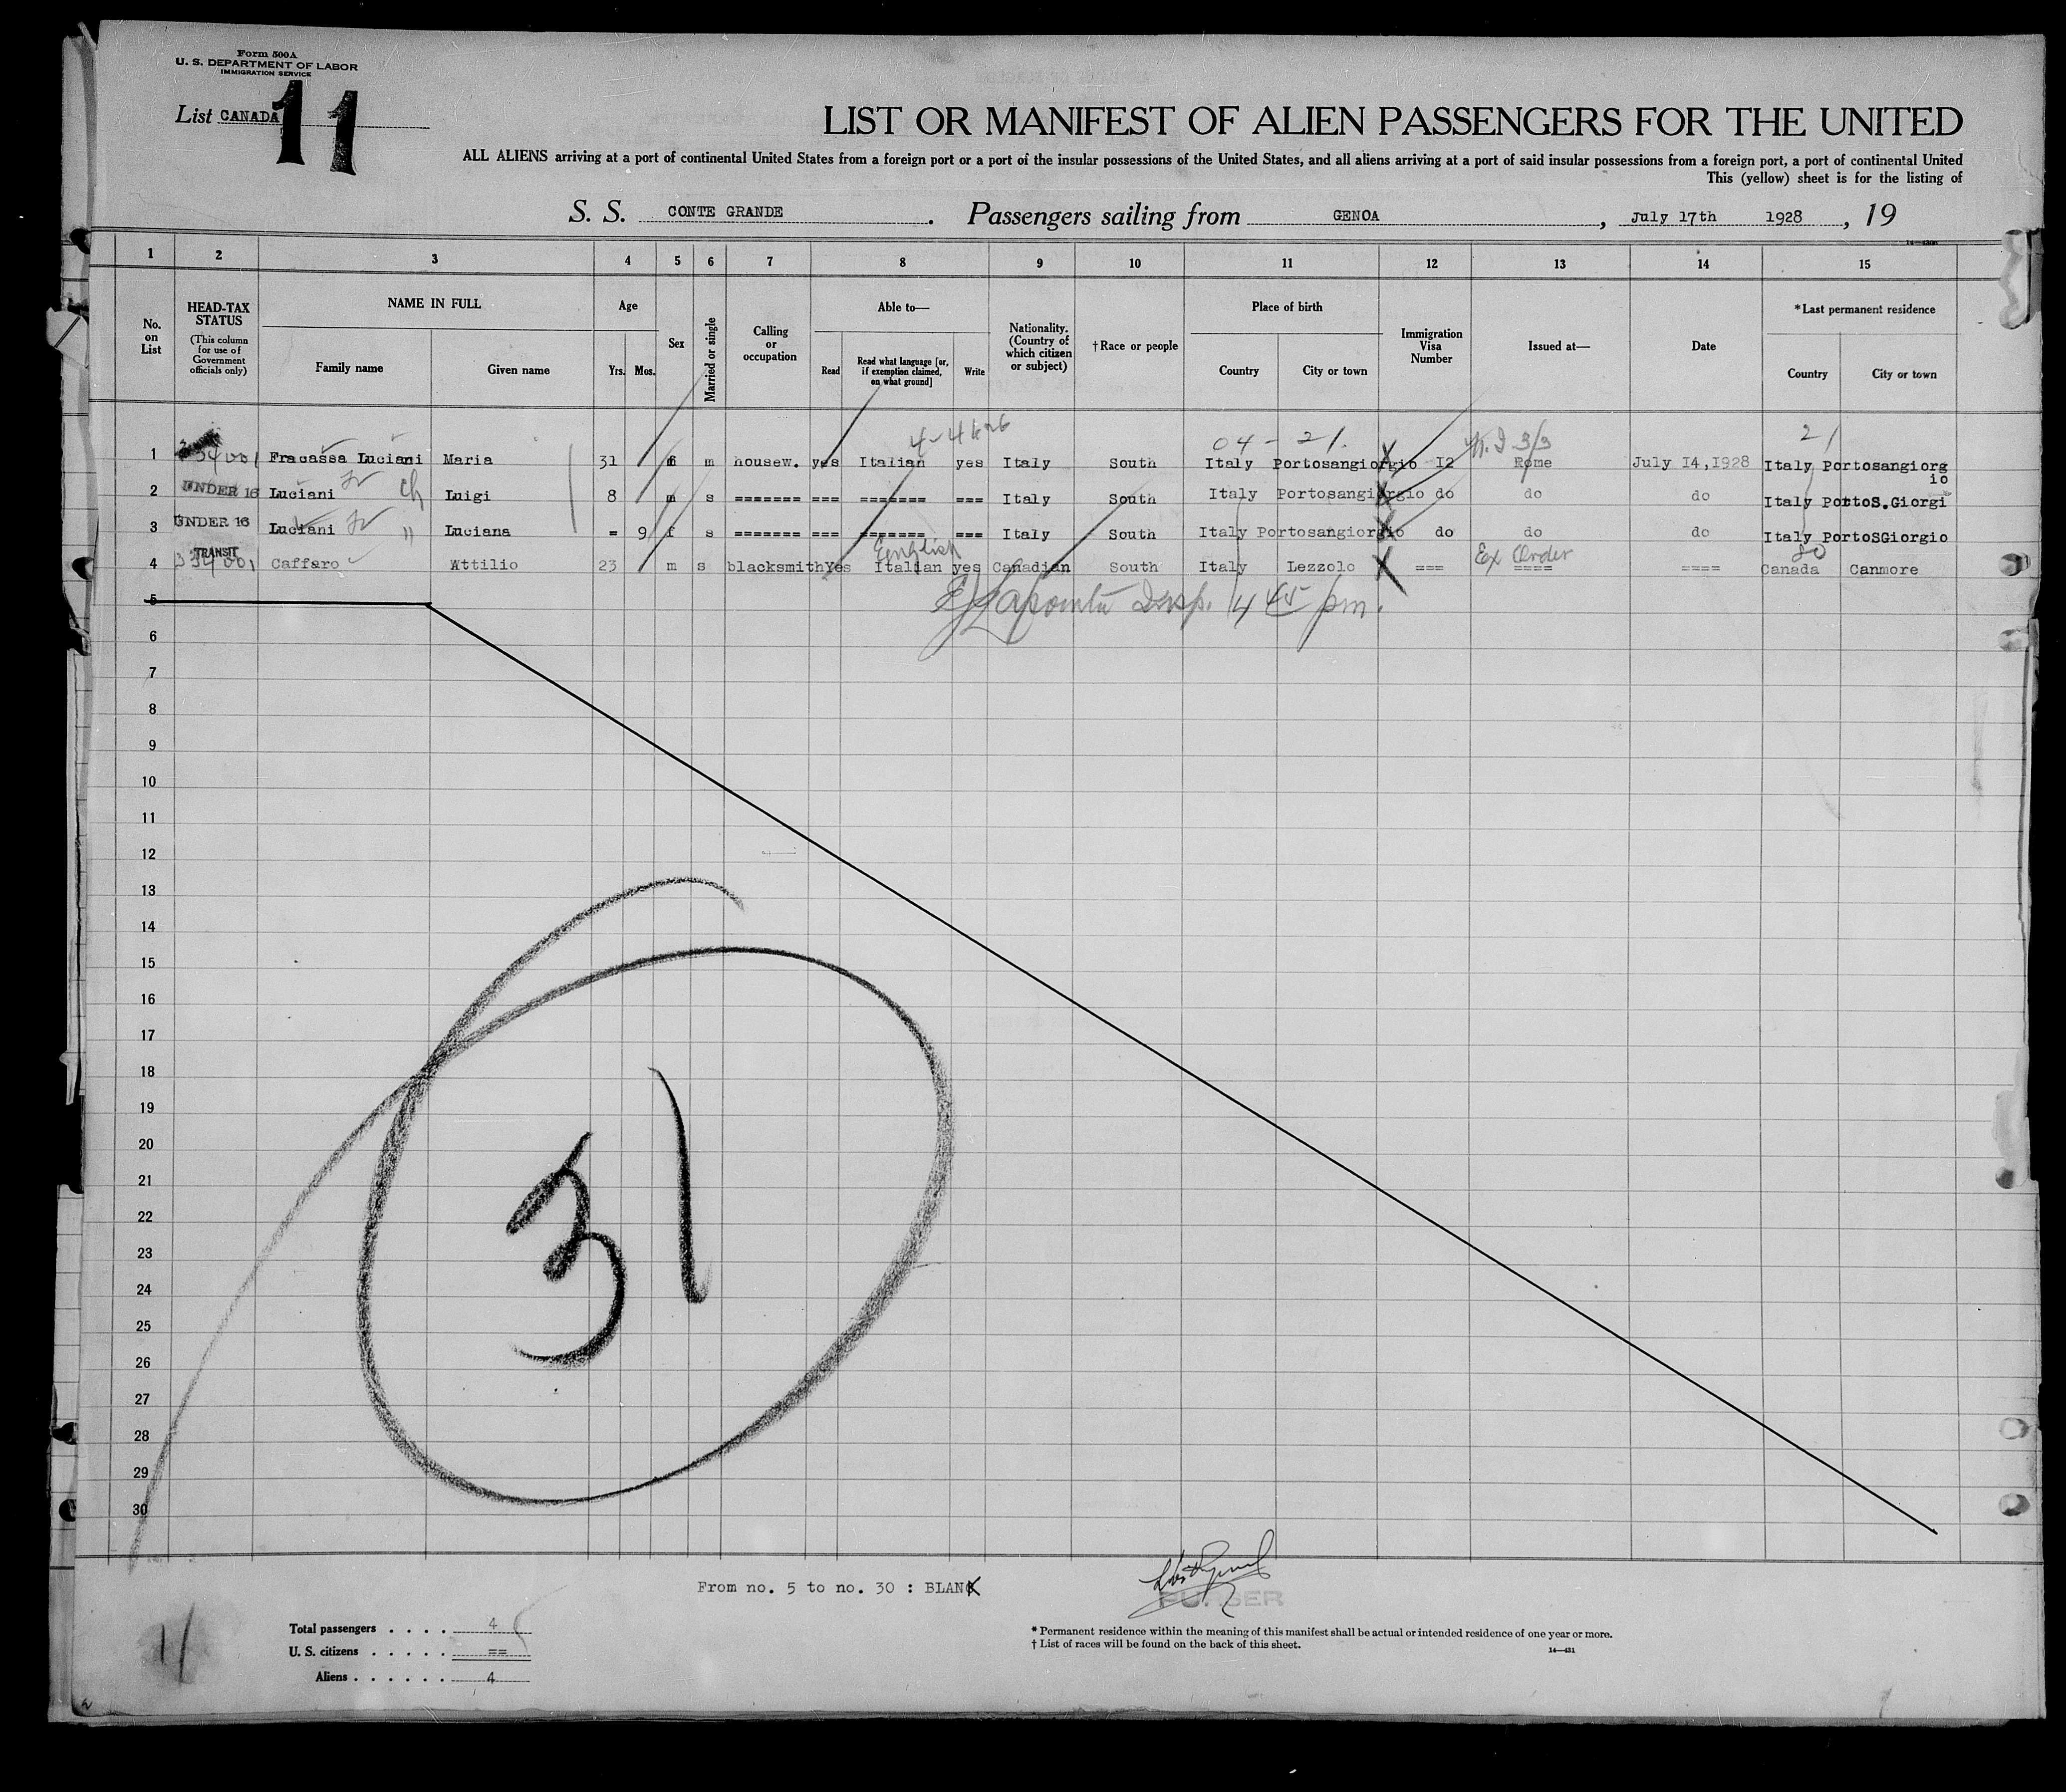 Form 500A
U. S. DEPARTMENT OF LABOR
IMMIGRATION SERVICE
List CANADA 11
LIST OR MANIFEST OF ALIEN PASSENGERS FOR THE UNITED
ALL ALIENS arriving at a port of continental United States from a foreign port or a port of the insular possessions of the United States, and all aliens arriving at a port of said insular possessions from a foreign port, a port of continental United
This (yellow) sheet is for the listing of
S. S. CONTE GRANDE. Passengers sailing from GENOA, July 17th 1928, 19
1 2 3 4 5 6 7 8 9 10 11 12 13 14 15
No. on List
HEAD-TAX STATUS (This column for use of Government officials only)
NAME IN FULL
Family name Given name
Age
Yrs. Mos.
Sex
Married or single
Calling or occupation
Able to—
Read Read what language [or, if exemption claimed, on what ground] Write
Nationality. (Country of which citizen or subject)
†Race or people
Place of birth
Country City or town
Immigration Visa Number
Issued at—
Date
*Last permanent residence
Country City or town
04 - 21. 21
1 Fracassa Luciani Maria 31 f m housew. yes Italian yes Italy South Italy Portosangiorgio 12 Rome July 14,1928 Italy Portosangiorg
io
2 UNDER 16 Luciani ch Luigi 8 m s ======= === ======= === Italy South Italy Portosangiorgio do do do Italy PortoS.Giorgi
3 UNDER 16 Luciani " Luciana = 9 f s ======= === ======= === Italy South Italy Portosangiorgio do do do Italy PortoSGiorgio
TRANSIT English Ex Order 80
4 Caffaro Attilio 23 m s blacksmith Yes Italian yes Canadian South Italy Lezzolo === ==== ==== Canada Canmore
Lapointe Insp. 4 45 pm.
5
6
7
8
9
10
11
12
13
14
15
16
17
18
19
20
21
22
23
24
25
26
27
28
29
30
31
From no. 5 to no. 30 : BLANK
PURSER
Total passengers . . . . 4
U. S. citizens . . . . . ==
Aliens . . . . . . 4
* Permanent residence within the meaning of this manifest shall be actual or intended residence of one year or more.
† List of races will be found on the back of this sheet.
14—431
11